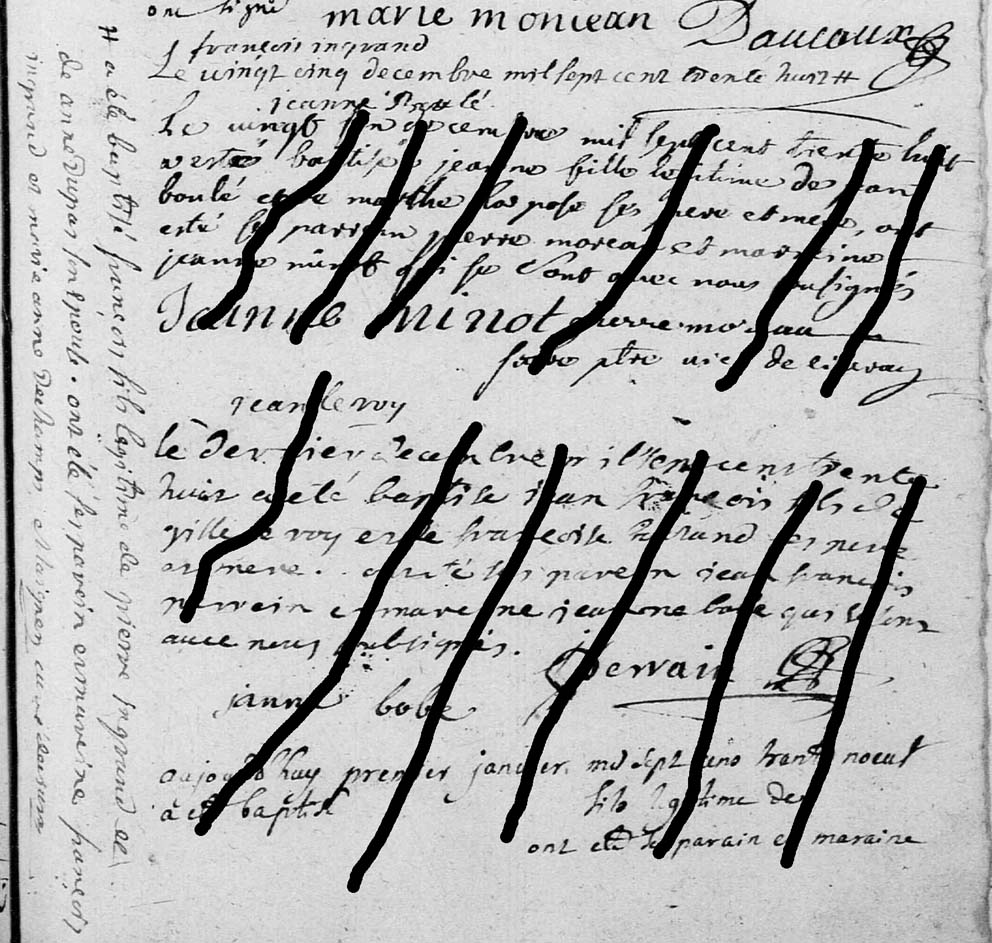 ont signé
marie moncean Daucourt
françois ingrand
Le vingt cinq decembre mil sept cent trente huit #
jeanne Boulé
Le vingt decembre mil sept cent trente huit
a esté baptisé jeanne fille legitime de jean
boulé et de marthe la pose ses pere et mere, ont
esté ses parrein pierre moreau et marreine
jeanne minot qui se sont avec nous soussignés
Jeanne minot pierre moreau
ptre vic de
jean le roy
le dernier decembre mil sept cent trente
huit a été baptisé jean françois fils de
gille le roy et de françoise ses pere
et mere. ont été ses parein jean françois
et mareine jeanne bobe qui se sont
avec nous soubsignés.
Gervain
janne bobe
aujourdhuy premier janvier mil sept cens trante noeuf
à eté baptisé fils legitime de
ont eté le parain et maraine
# a été baptisé françois fils legitime de pierre ingrand de
de anne dupas son epouse. ont été ses parein et mareine françois
ingrand et marie anne Deschamps